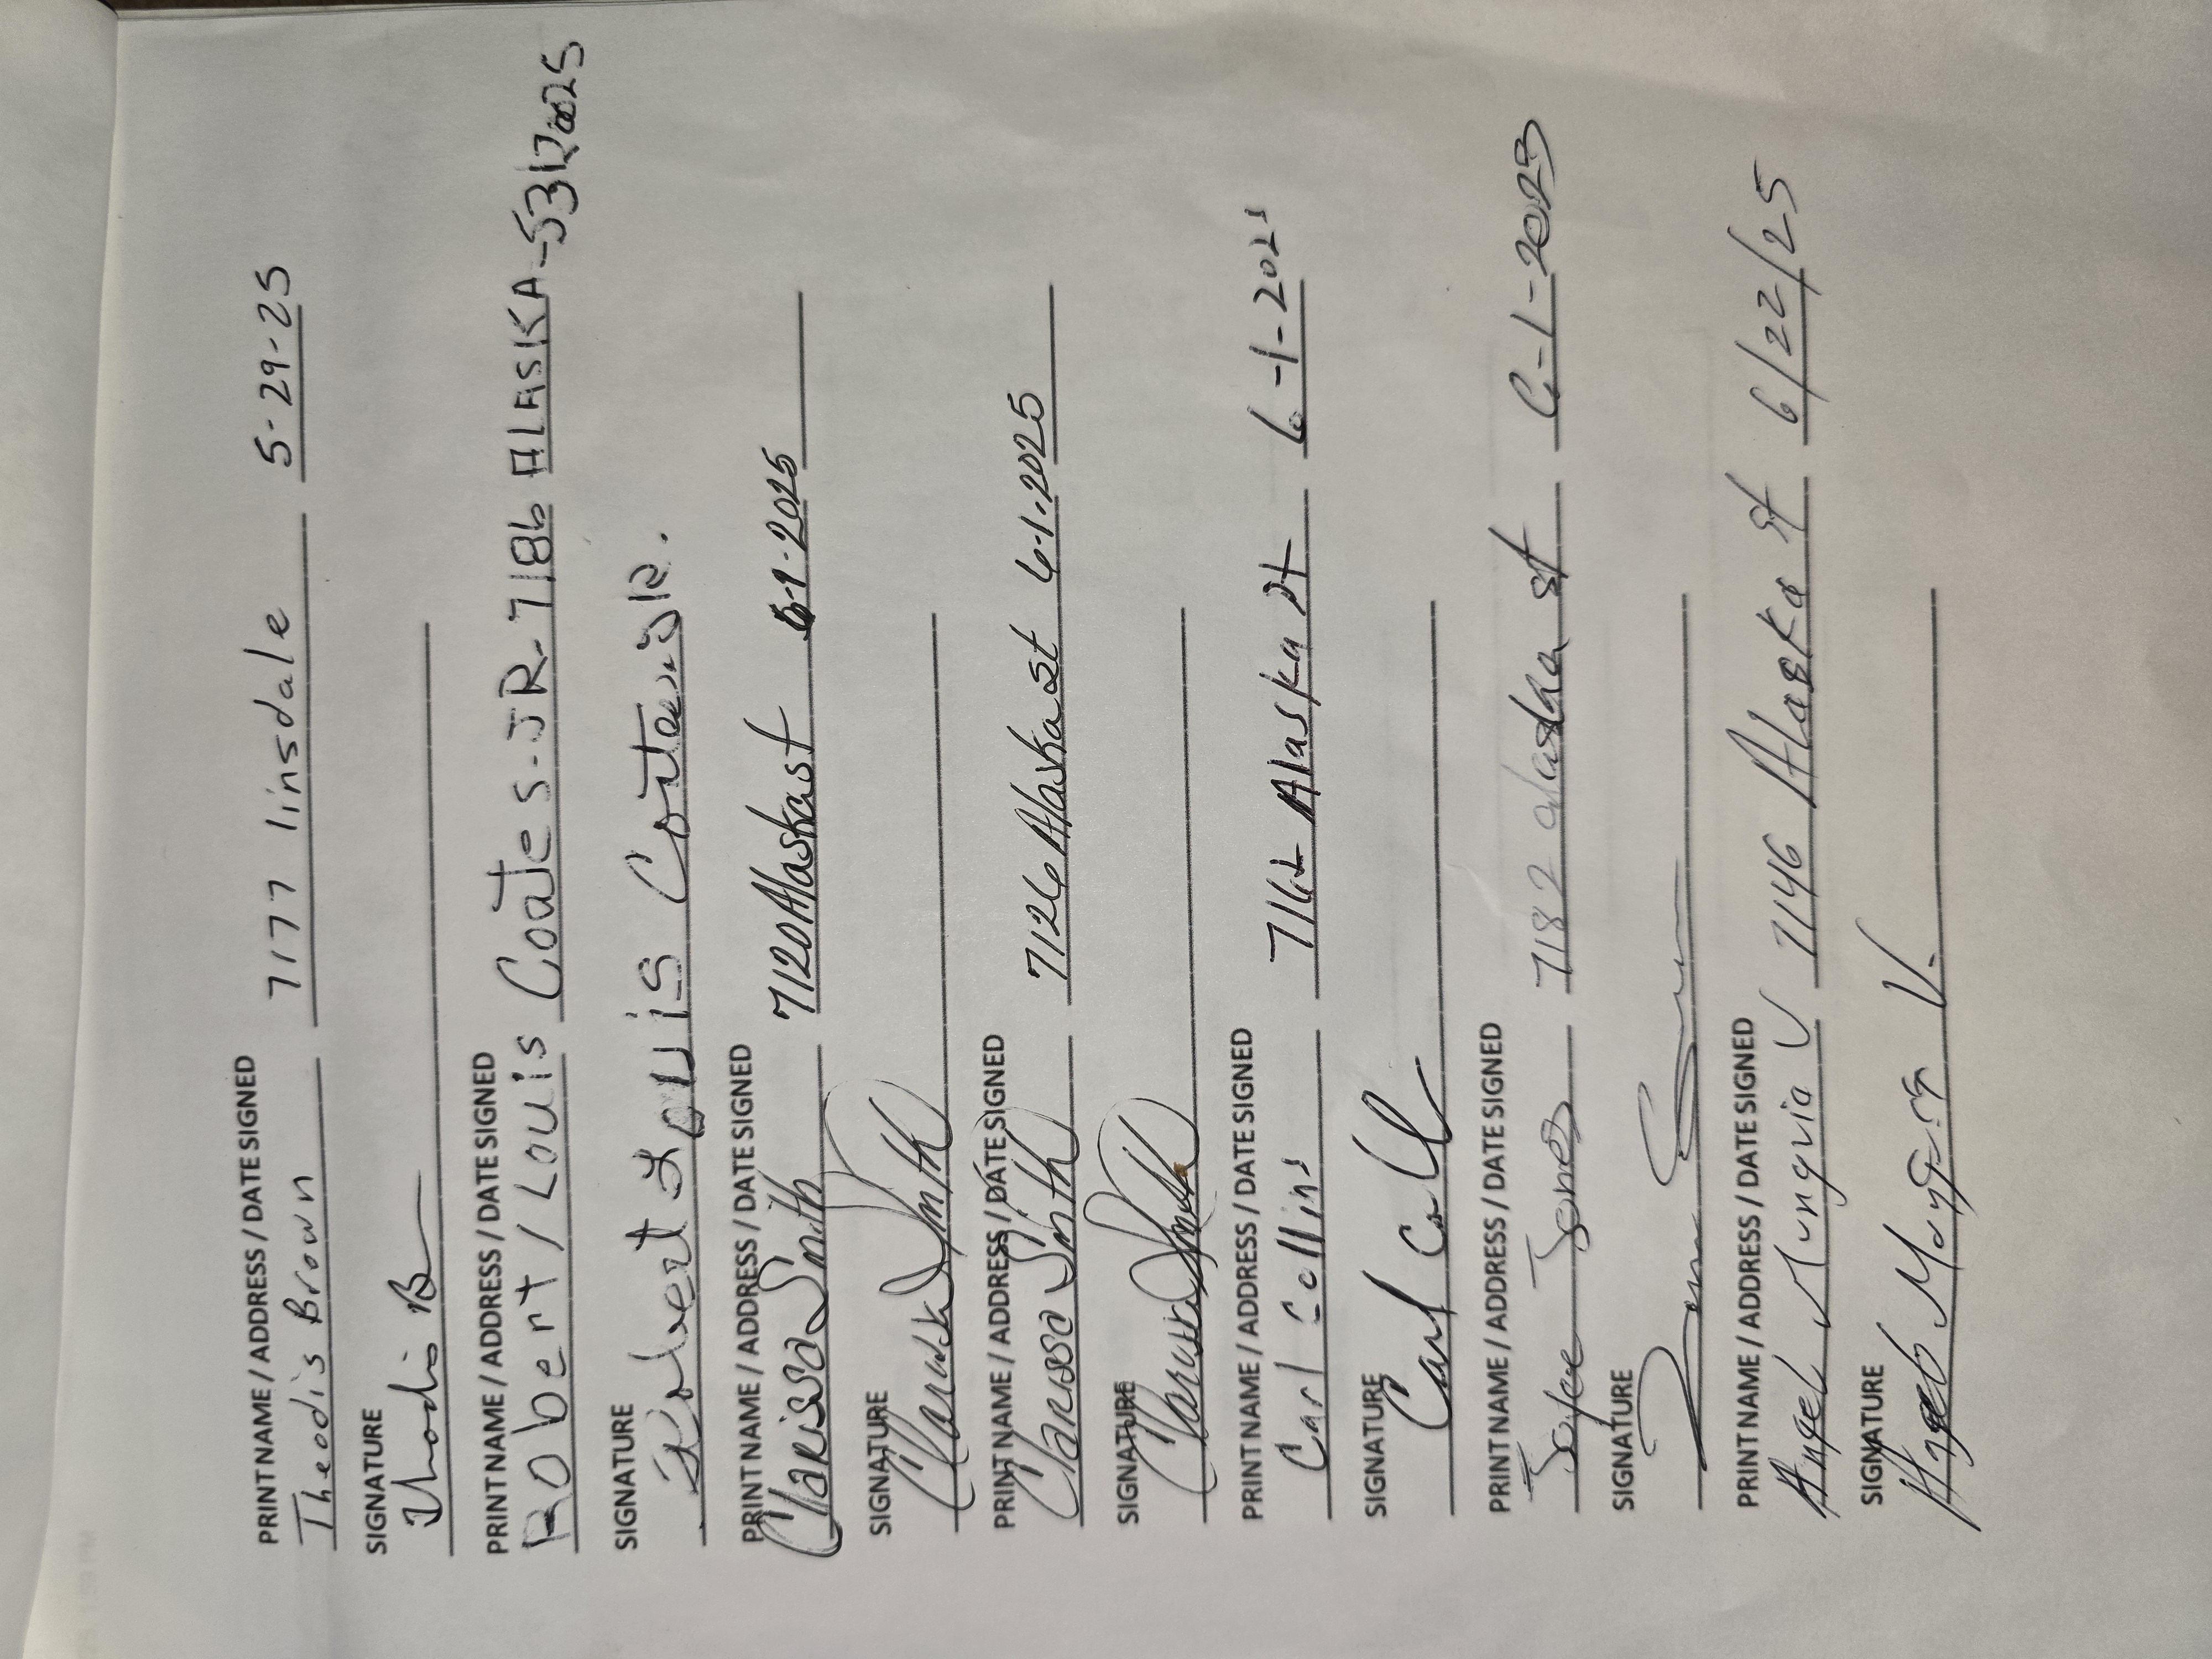 PRINT NAME / ADDRESS / DATE SIGNED
Theodis Brown 7177 linsdale 5-29-25
SIGNATURE
Thodis B
PRINT NAME / ADDRESS / DATE SIGNED
Robert / Louis Coates-JR-7186 ALASKA-5312025
SIGNATURE
Robert Louis Coates JR.
PRINT NAME / ADDRESS / DATE SIGNED
Clarissa Smith 7120 Alaska st 6-1-2025
SIGNATURE
Clarissa Smith
PRINT NAME / ADDRESS / DATE SIGNED
Clarissa Smith 7126 Alaska st 6-1-2025
SIGNATURE
Clarissa Smith
PRINT NAME / ADDRESS / DATE SIGNED
Carl Collins Alaska st 6-1-202
SIGNATURE
Carl Coll
PRINT NAME / ADDRESS / DATE SIGNED
Joyce Jones 7182 alaska st 6-1-2025
SIGNATURE
PRINT NAME / ADDRESS / DATE SIGNED
Angel Munguia V 7146 Alaska st 6/22/25
SIGNATURE
Angel Munguia V.